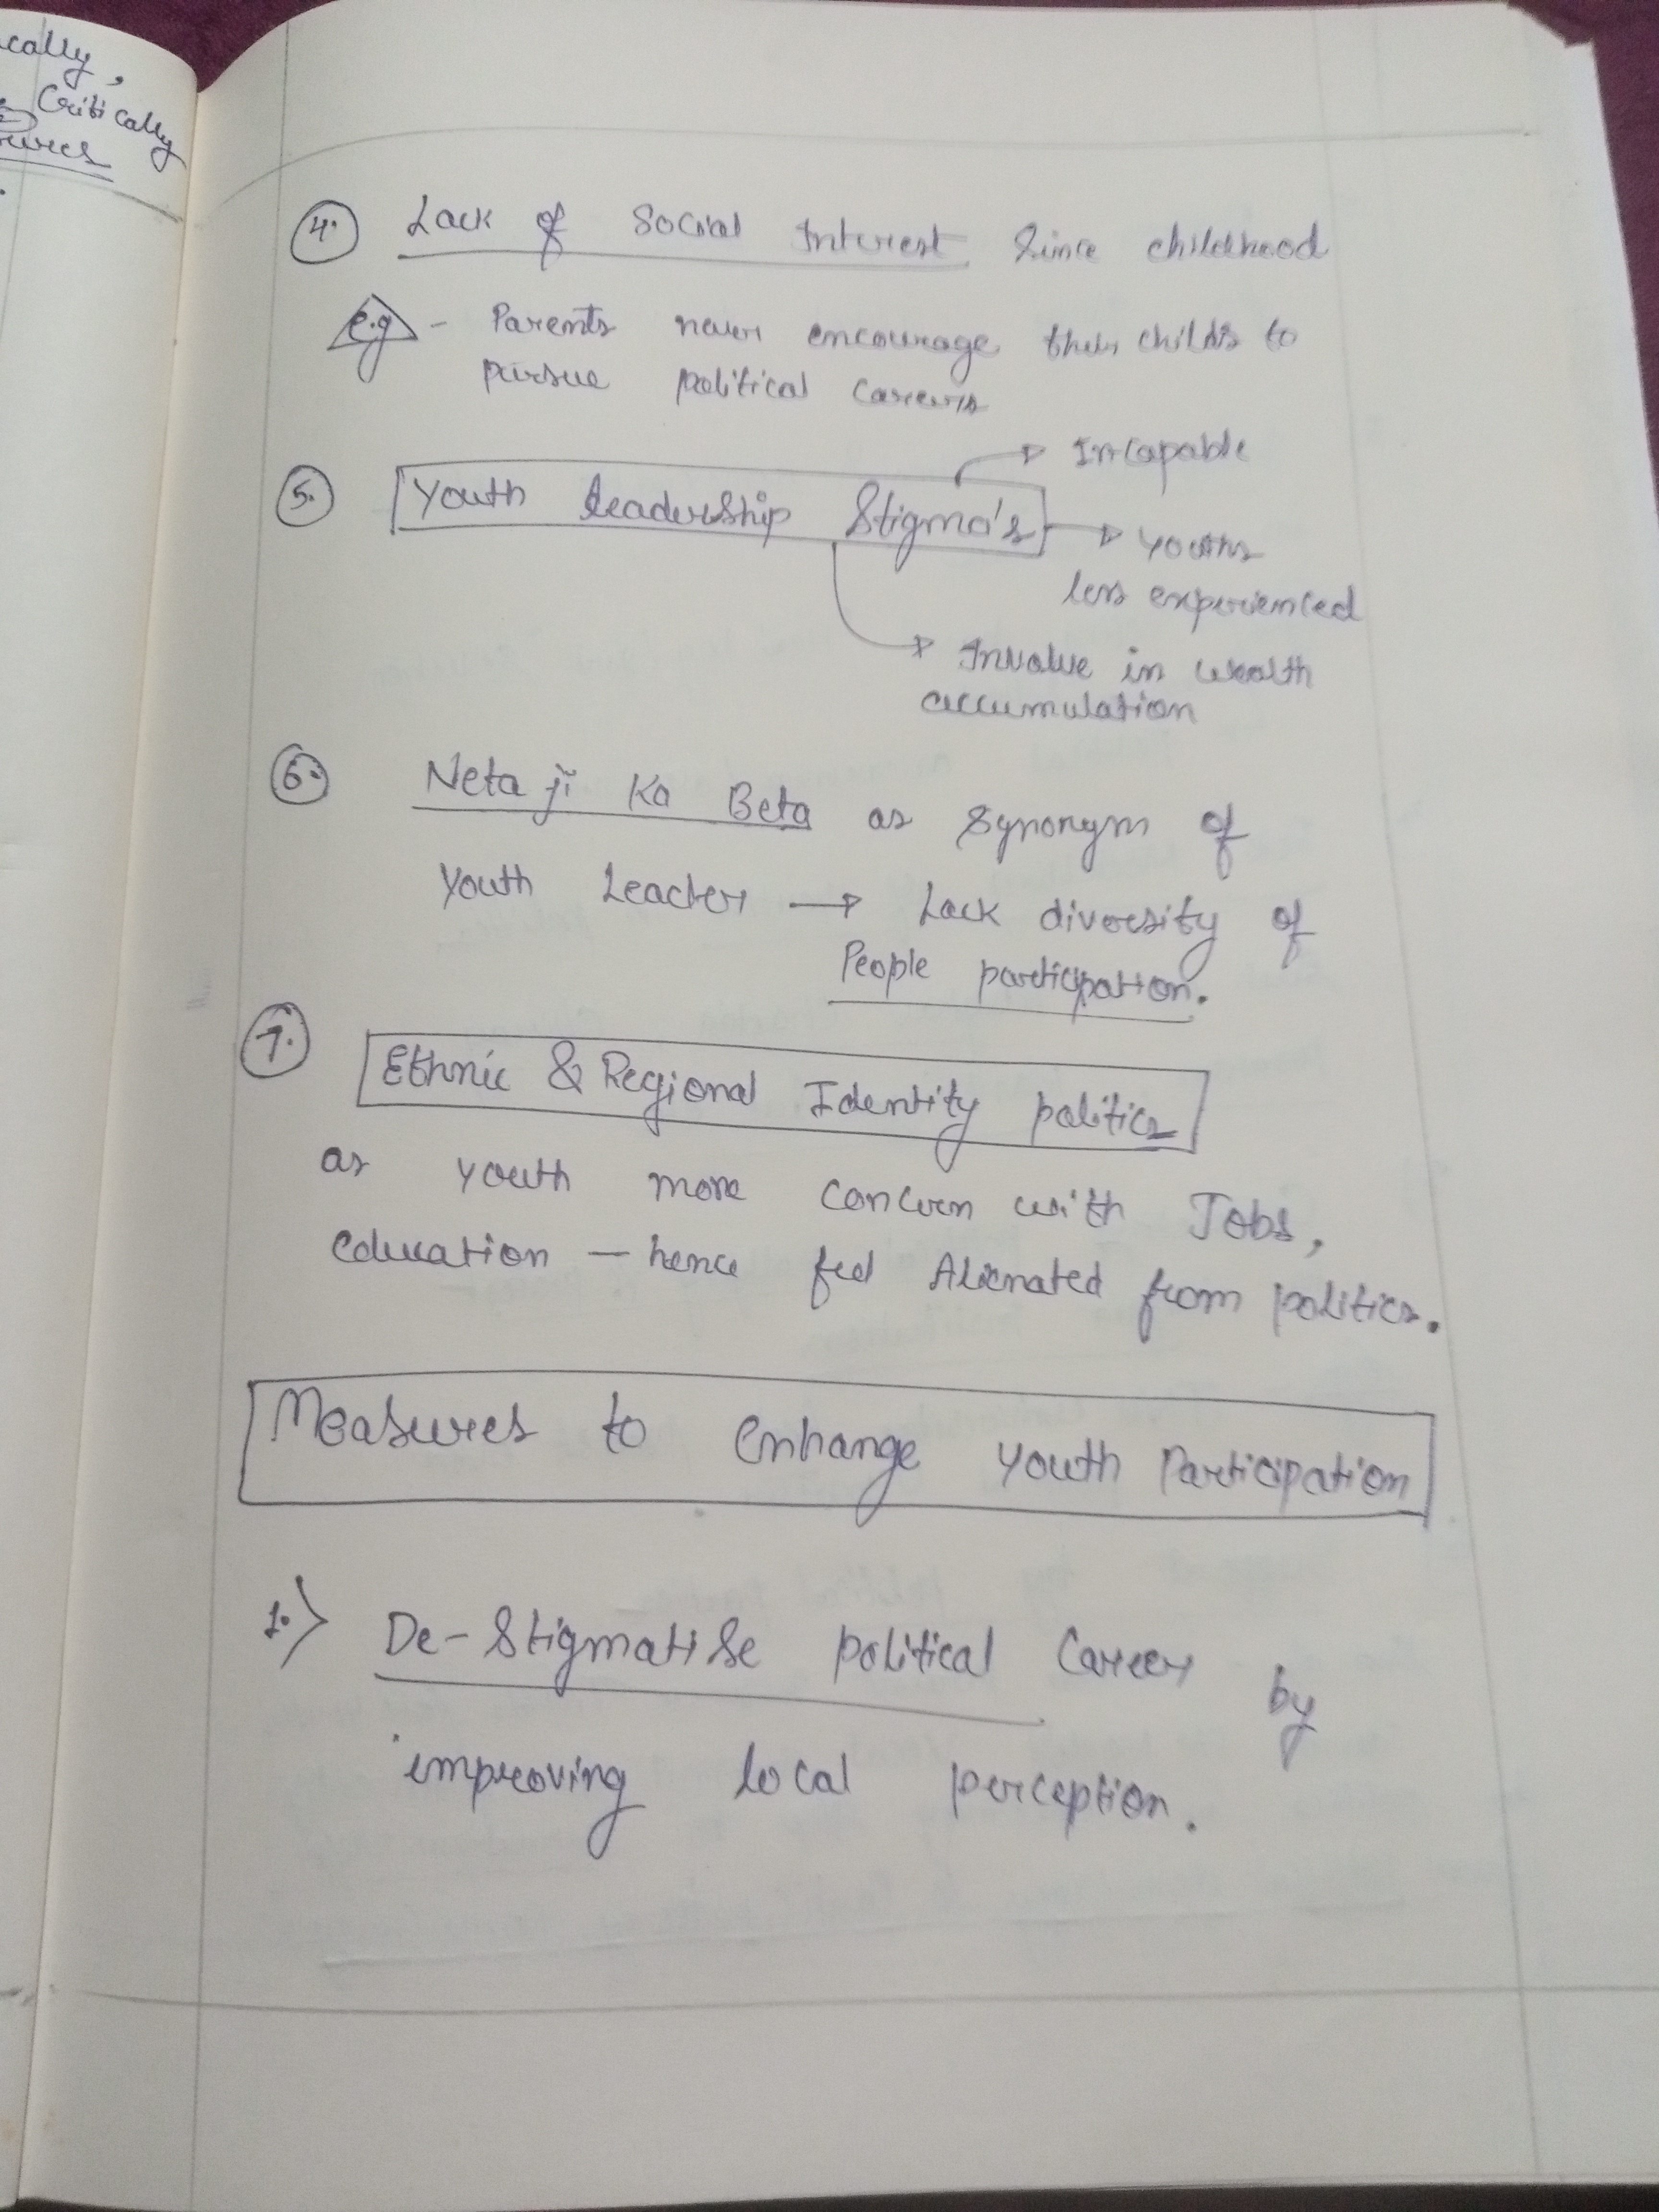 cally,
Critically
4. Lack of Social Interest Since childhood
e.g - Parents never encourage their childs to
pursue political careers
Incapable
5. Youth leadership Stigma's
Youths
less experienced
Involve in wealth
accumulation
6. Neta ji Ka Beta as Synonym of
Youth Leader → Lack diversity of
People participation.
7. Ethnic & Regional Identity politics
as youth more concern with Jobs,
education — hence feel Alienated from politics.
Measures to enhange youth Participation
1.> De-Stigmatise political Career by
improving local perception.